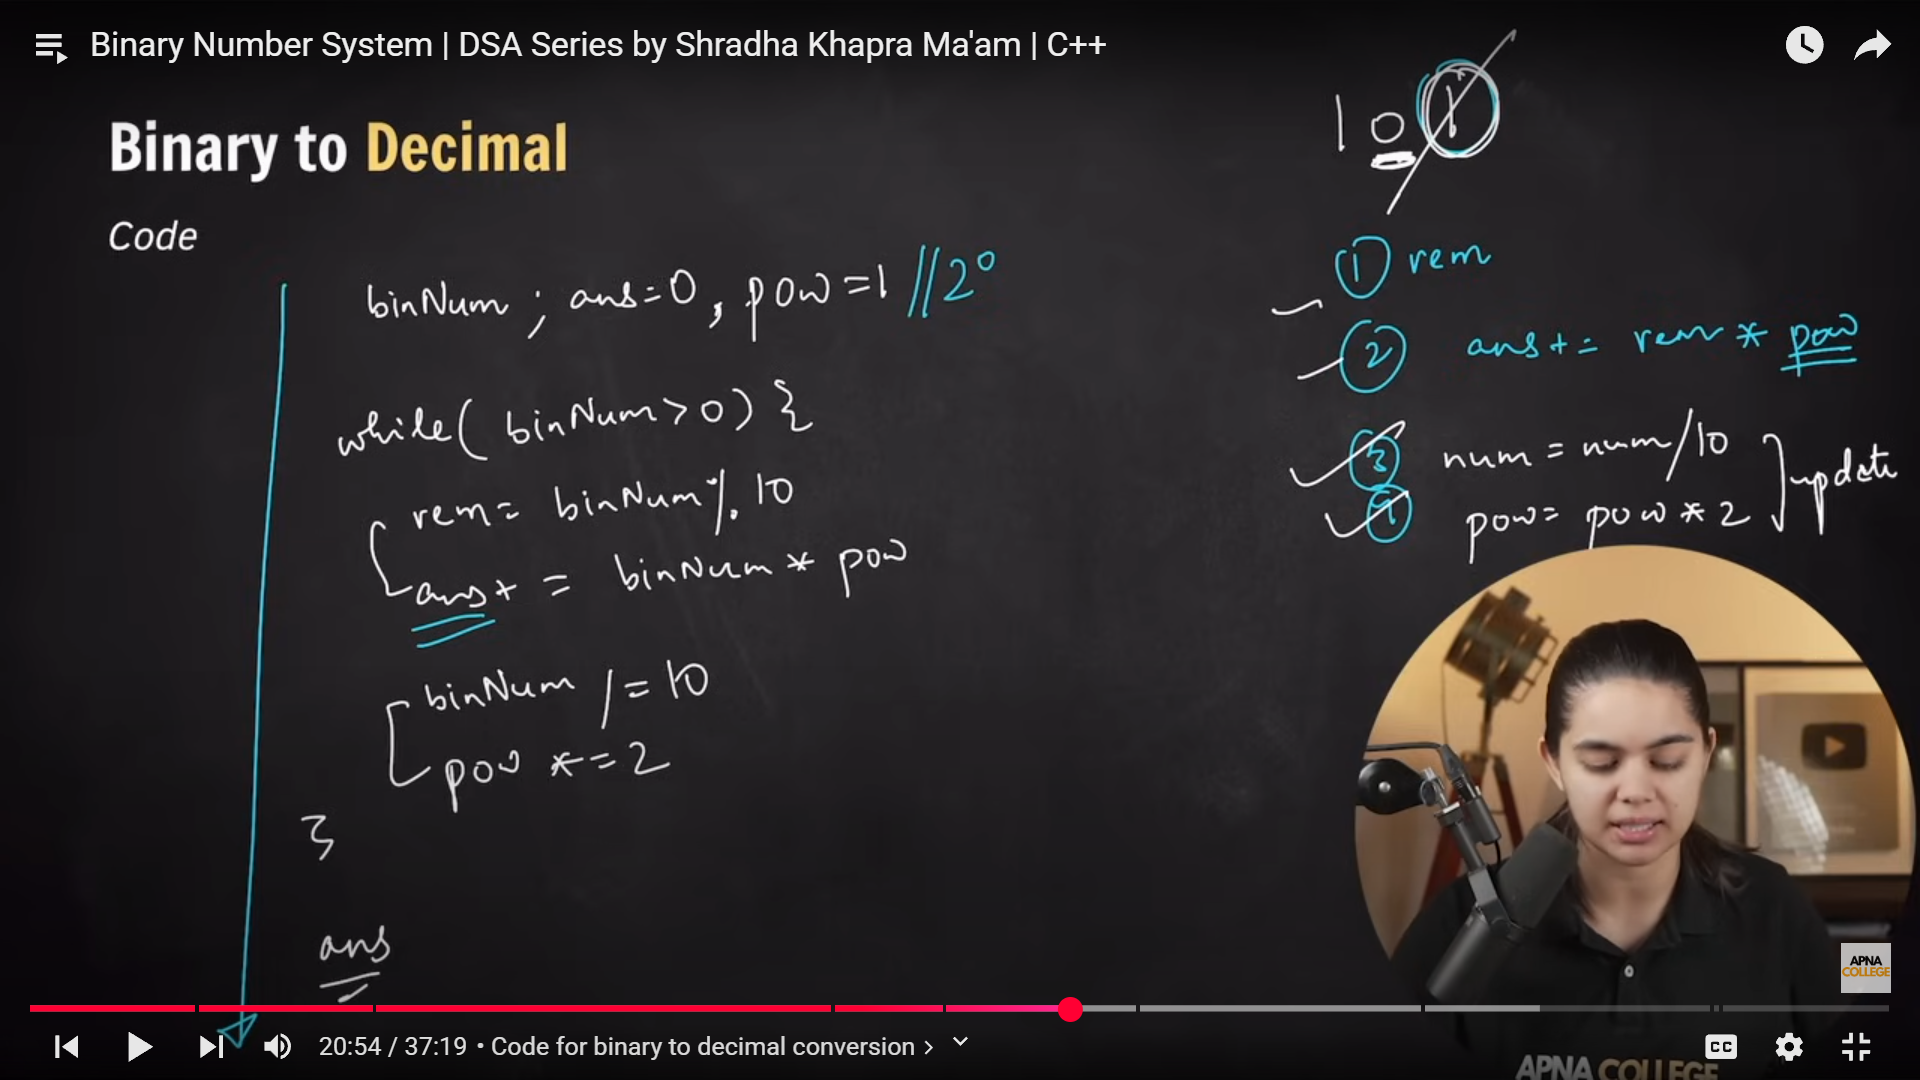 Binary Number System | DSA Series by Shradha Khapra Ma'am | C++
Binary to Decimal
Code
binNum ; ans=0, pow=1 //2⁰
while( binNum>0) {
rem= binNum%10
ans+ = binNum * pow
binNum /=10
pow *=2
}
ans
101
① rem
② ans+= rem * pow
③ num = num/10
④ pow= pow * 2
update
APNA
COLLEGE
20:54 / 37:19 • Code for binary to decimal conversion
CC
APNA COLLEGE